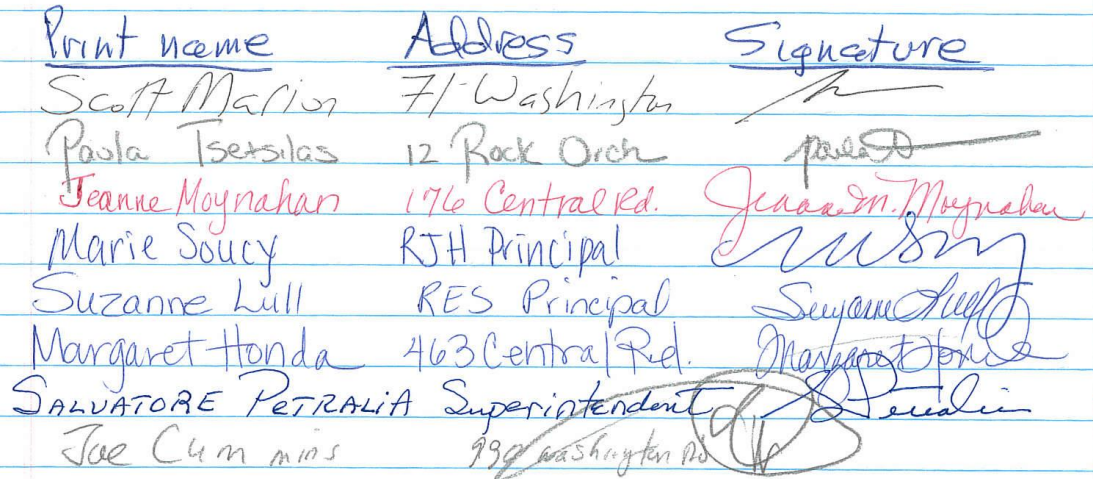 Print name Address Signature
Scott Marion 71 Washington
Paula Tsetsilas 12 Rock Orch Paula
Jeanne Moynahan 176 Central Rd. Jeanne M. Moynahan
Marie Soucy RJH Principal
Suzanne Lull RES Principal Suzanne Lull
Margaret Honda 463 Central Rd. Margaret Honda
SALVATORE PETRALIA Superintendent S Petralia
Joe Cummins Washington Rd